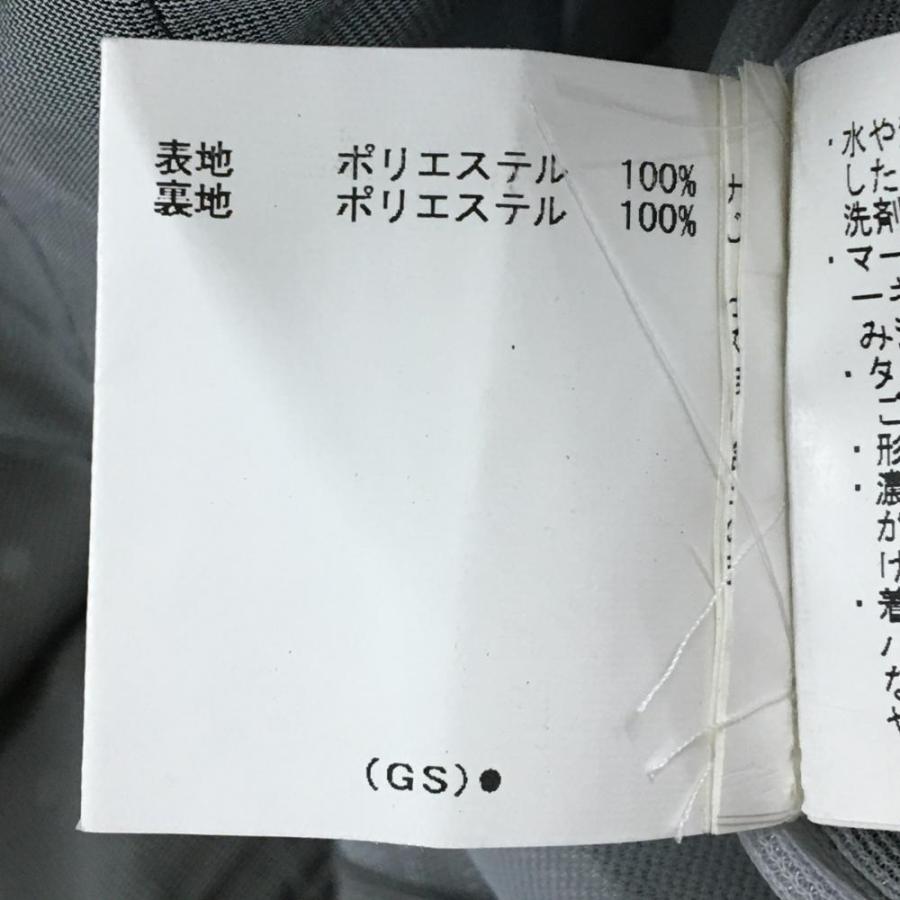 表地 ポリエステル 100%
裏地 ポリエステル 100%
(GS)●
・水や
した
洗剤
・マー
ー
み
・タ
ご
・形
・濃
が
け
・着
ハ
な
や